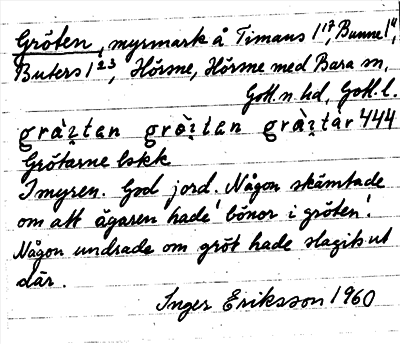 Gröten, myrmark å Timans 1¹⁷, Bunne 1⁴,
Buters 1²³, Hörsne, Hörsne med Bara sn,
Gotl. n. hd, Gotl. l.
gràı̨tən grò̀ı̨tən gràı̨tàr 444
Grötarne lskk
I myren. God jord. Någon skämtade
om att ägaren hade 'bönor i gröten'.
Någon undrade om gröt hade slagits ut
där.
Inger Eriksson 1960